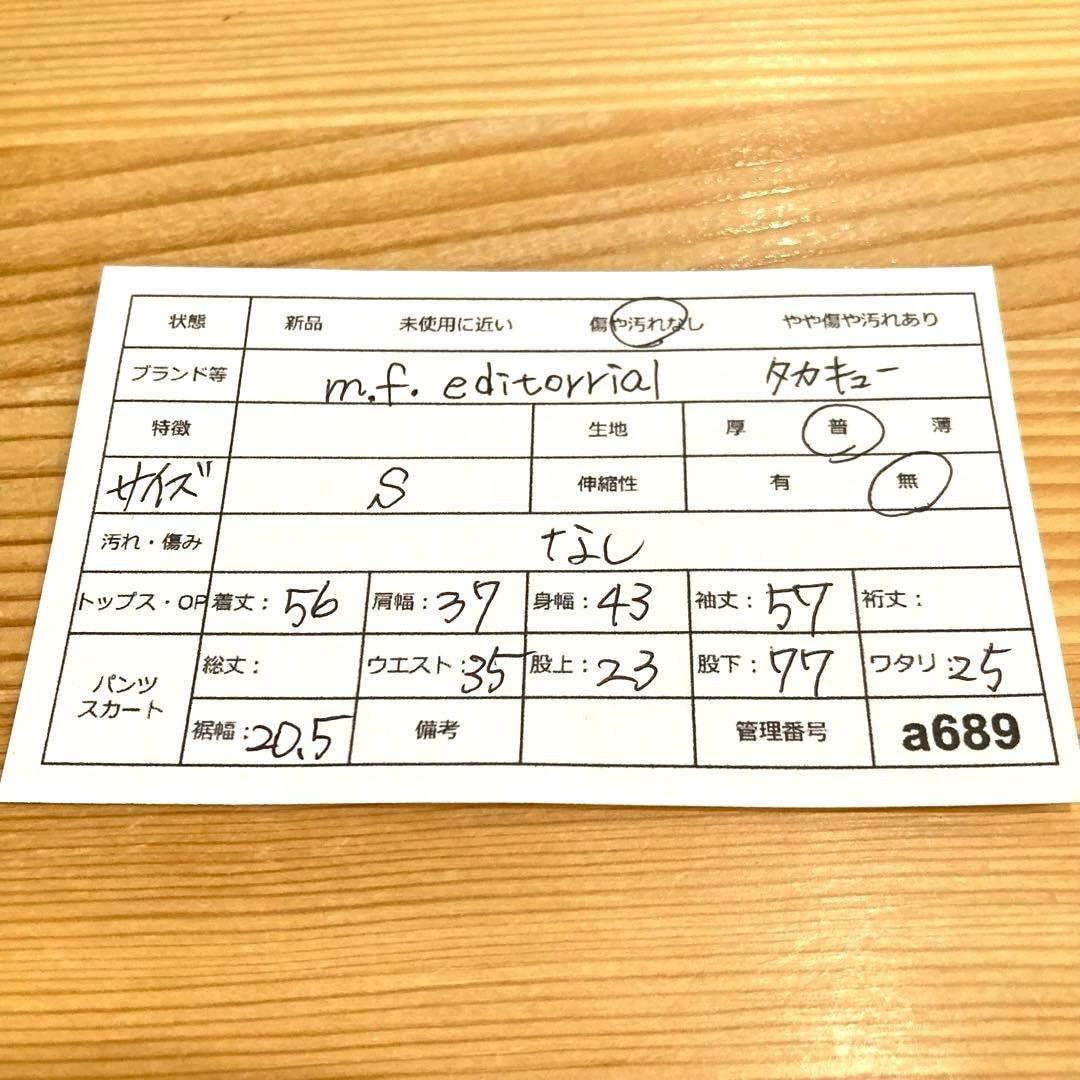 状態 新品 未使用に近い 傷や汚れなし やや傷や汚れあり
ブランド等 m.f. editorrial タカキュー
特徴 生地 厚 普 薄
サイズ S 伸縮性 有 無
汚れ・傷み なし
トップス・OP 着丈：56 肩幅：37 身幅：43 袖丈：57 裄丈：
パンツ スカート 総丈： ウエスト：35 股上：23 股下：77 ワタリ：25
裾幅：20.5 備考 管理番号 a689